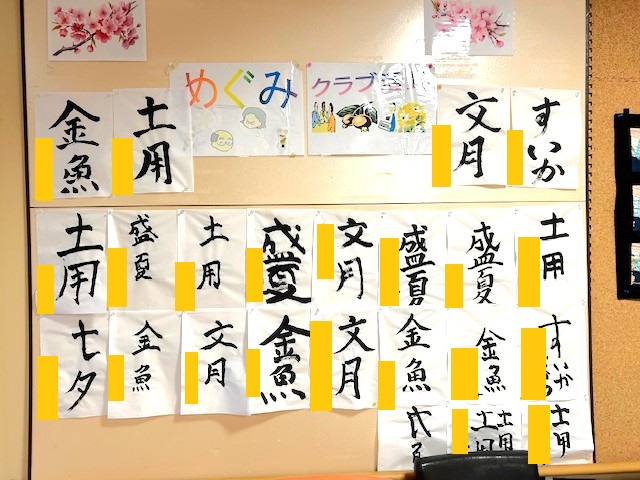 めぐみ クラブ
金魚
土用
文月
すいか
土用
盛夏
土用
盛夏
文月
盛夏
盛夏
土用
七夕
金魚
文月
金魚
文月
金魚
金魚
すいか
土用
土用
土用